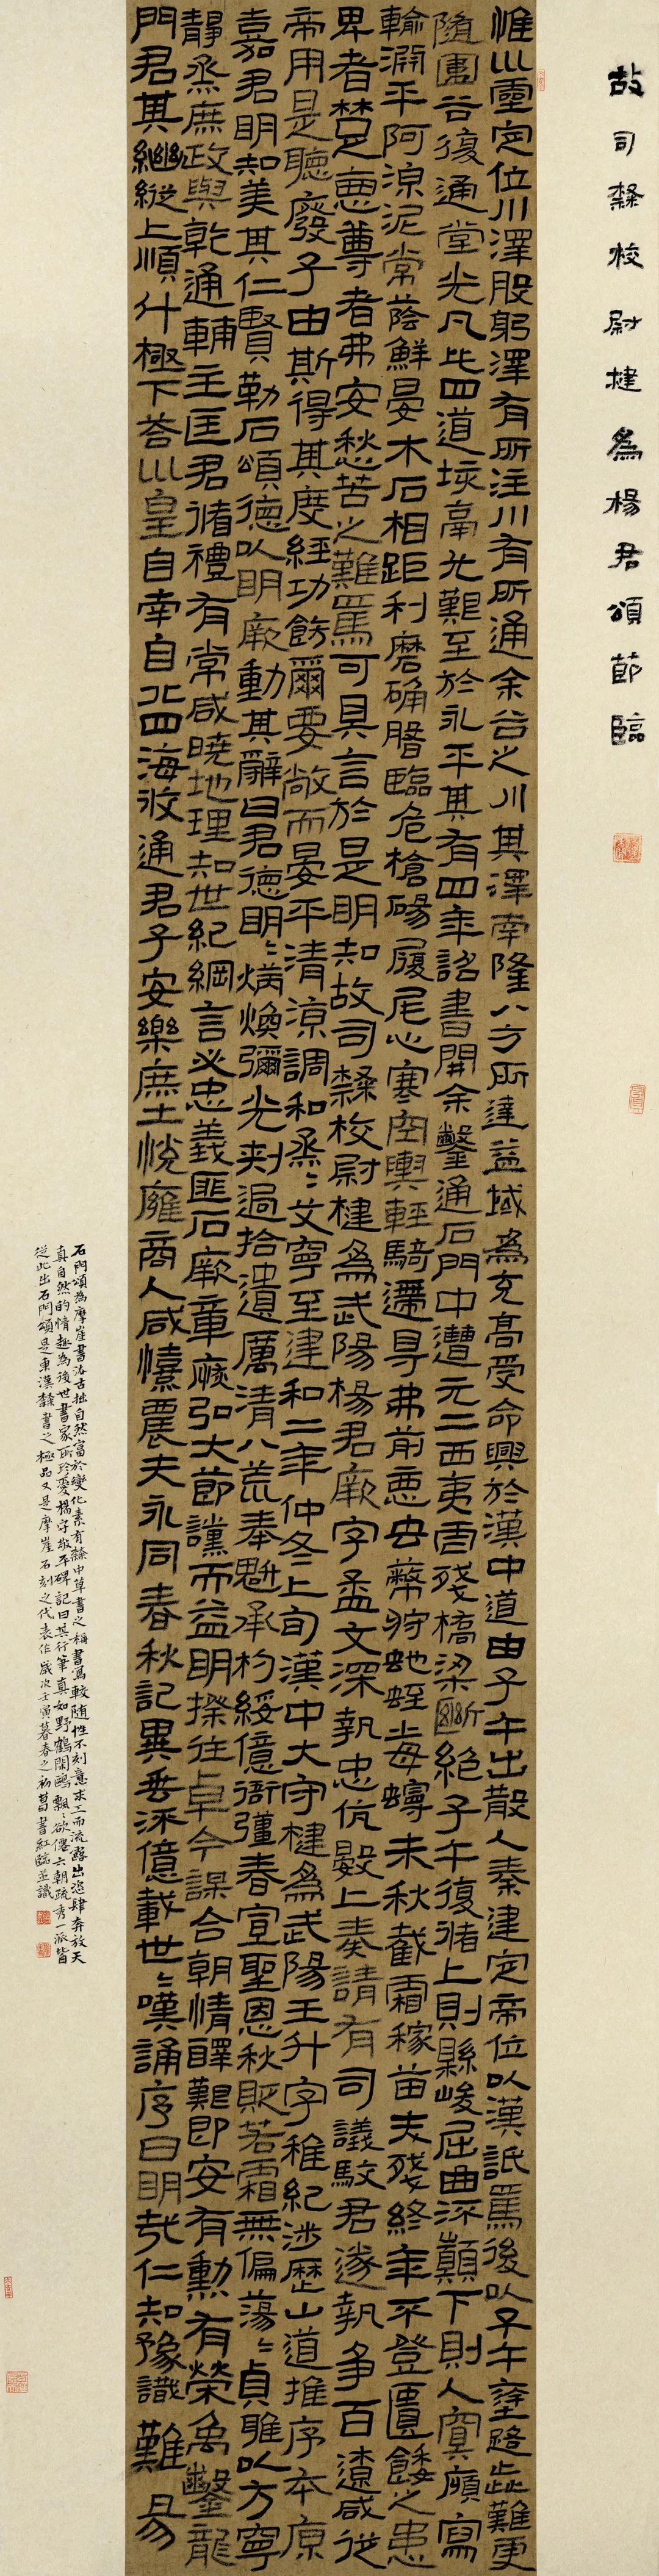 故司隸校尉楗為楊君頌節臨
惟巛靈定位川澤股躬澤有所注川有所通余谷之川其澤南隆八方所達益域為充高受命興於漢中道由子午出散入秦建定帝位以漢詆焉後以子午塗路歮難更
隨圍谷復通堂光凡此四道垓鬲尤艱至於永平其有四年詔書開余鑿通石門中遭元二西夷虐殘橋梁斷絕子午復循上則縣峻屈曲流顛下則入冥廎寫
輸淵平阿湶泥常蔭鮮晏木石相距利磨确磐臨危槍碭履尾心寒空輿輕騎遰㝵弗前惡虫蔽狩虵蛭毒蟃未秋截霜稼苗夭殘終年不登匱餧之患
卑者楚惡尊者弗安愁苦之難焉可具言於是明知故司隸校尉楗為武陽楊君厥字孟文深執忠伉數上奏請有司議駮君遂執爭百遼咸從
帝用是聽廢子由斯得其度經功飭爾要敞而晏平清涼調和烝〻艾寧至建和二年仲冬上旬漢中大守楗為武陽王升字稚紀涉歷山道推序本原
嘉君明知美其仁賢勒石頌德以明厥勳其辭曰君德明〻炳煥彌光刺過拾遺厲清八荒奉魁承杓綏億衙彊春宣聖恩秋貶若霜無偏蕩〻貞雅以方寧
靜烝庶政與乾通輔主匡君循禮有常咸曉地理知世紀綱言必忠義匪石厥章恢弘大節讜而益明揆往卓今謀合朝情醳艱即安有勳有榮禹鑿龍
門君其繼縱上順斗極下答巛皇自南自北四海攸通君子安樂庶士悅雍商人咸憘農夫永同春秋記異垂流億載世〻嘆誦序曰明哉仁知豫識難易
石門頌為摩崖書法古拙自然富於變化素有隸中草書之稱書寫較隨性不刻意求工而流露出恣肆奔放天
真自然的情趣為後世書家所珍愛楊守敬平碑記曰其行筆真如野鶴閒鷗飄〻欲僊六朝疏秀一派皆
從此出石門頌是東漢隸書之極品又是摩崖石刻之代表作歲次壬寅暮春之初菖書紅臨並識